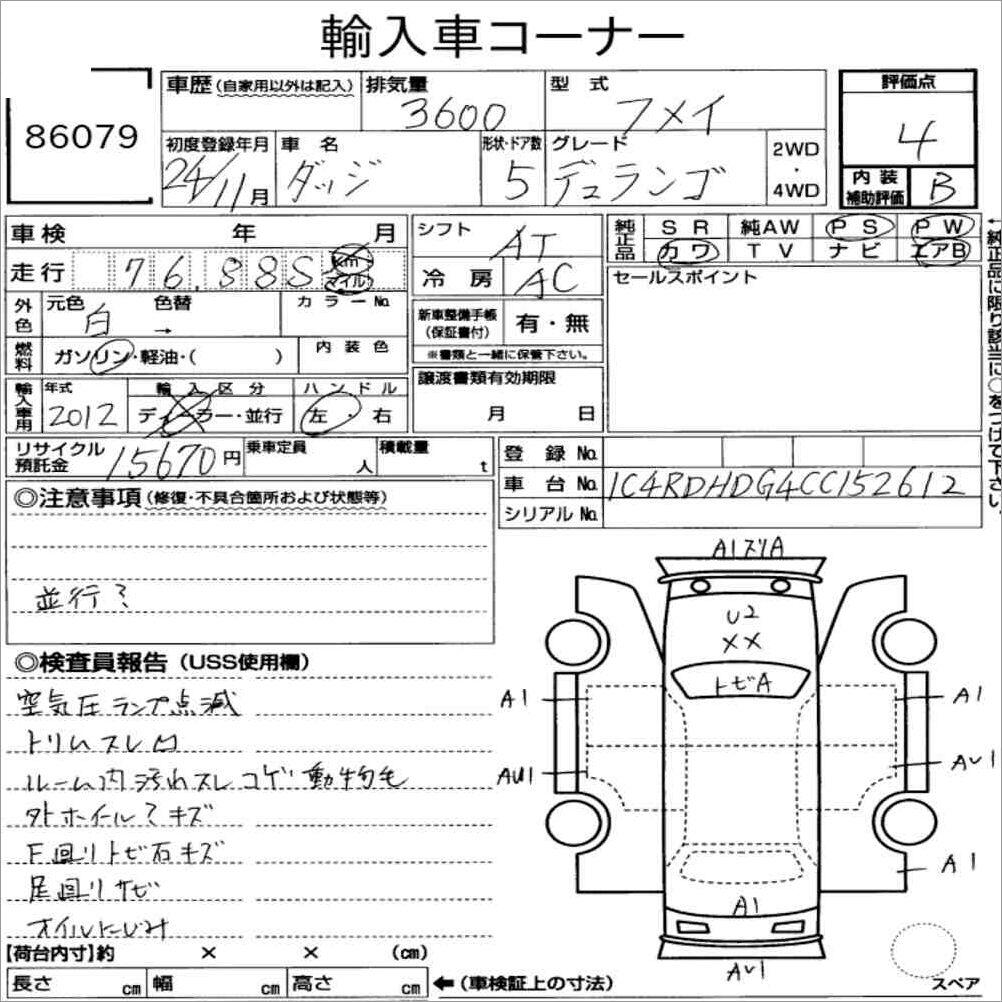 輸入車コーナー
86079
車歴(自家用以外は記入) 排気量 3600 型式 フメイ
評価点 4
初度登録年月 24/11月 車名 ダッジ 形状・ドア数 5 グレード デュランゴ 2WD・4WD
内装補助評価 B
車検 年 月
走行 76,885 km マイル
シフト AT
冷房 AC
純正品 SR 純AW PS PW
カワ TV ナビ エアB
←純正品に限り該当に○をつけて下さい。
セールスポイント
外色 元色 白 色替 → カラーNo.
燃料 ガソリン・軽油・( ) 内装色
新車整備手帳(保証書付) 有・無
※書類と一緒に保管下さい。
輸入車用 年式 2012 輸入区分 ディーラー・並行 ハンドル 左・右
譲渡書類有効期限
月 日
リサイクル預託金 15670円 乗車定員 人 積載量 t
登録No.
車台No. 1C4RDHDG4CC152612
シリアルNo.
◎注意事項(修復・不具合箇所および状態等)
並行?
◎検査員報告(USS使用欄)
空気圧ランプ点滅
トリムスレ凹
ルーム内汚れスレコゲ動物毛
外ホイール?キズ
下回りトビ石キズ
足回りサビ
オイルにじみ
【荷台内寸】約 × × (cm)
長さ cm 幅 cm 高さ cm ←(車検証上の寸法)
A1スリA
U2
XX
トビA
A1 A1
AU1 AU1
A1
A1
AU1
スペア